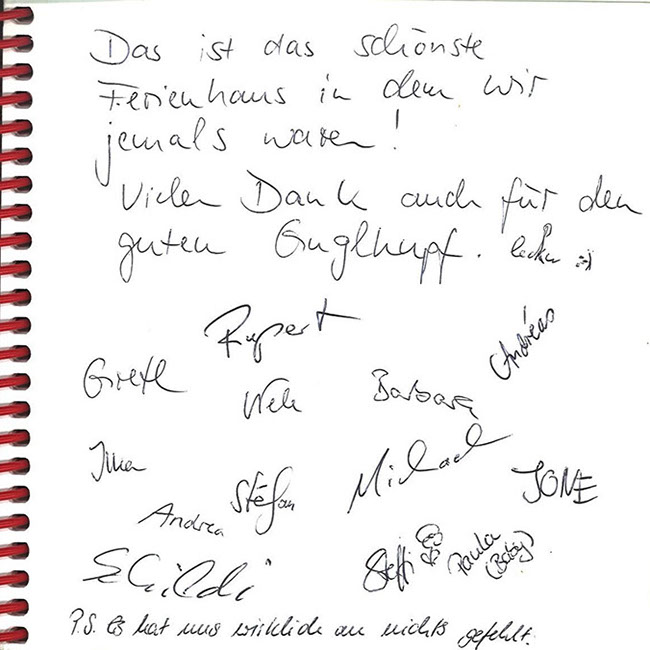 Das ist das schönste
Ferienhaus in dem wir
jemals waren!
Vielen Dank auch für den
guten Guglhupf. lecker :)
Rupert
Andreas
Gretl
Barbara
Michael
JONE
Stefan
Andrea
Steffi
Paula
(Baby)
Schildi
P.S. Es hat uns wirklich an nichts gefehlt.